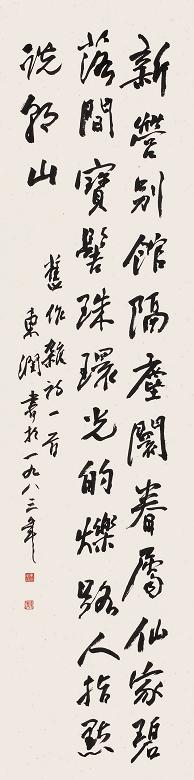 新營別館隔塵闤眷屬仙家碧
落間寶髻珠環光的爍路人指點
說山
舊作雜詩一首
東潤書於一九八三年